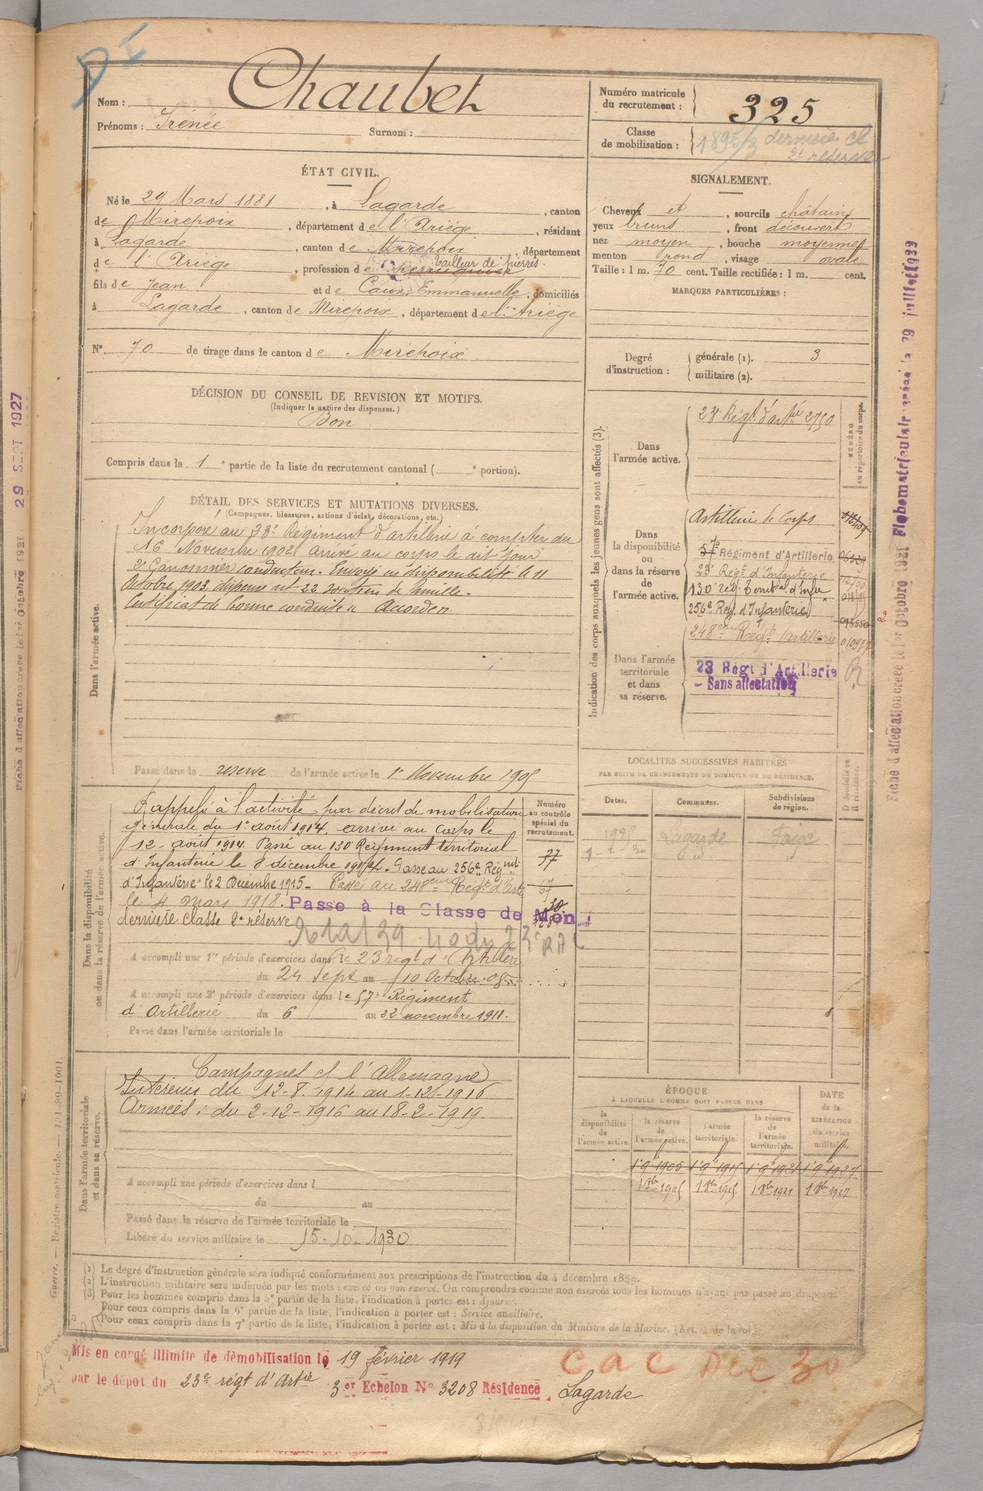 DI
Nom : Chaubet
Prénoms : Irénée Surnom :
Numéro matricule du recrutement : 325
Classe de mobilisation : 1895/3 dernière cl
2e réserve
ÉTAT CIVIL.
Né le 29 Mars 1881, à Lagarde, canton
de Mirepoix, département de l'Ariège, résidant
à Lagarde, canton de Mirepoix, département
de l'Ariège, profession de tailleur de pierres
fils de Jean et de Caux Emmanuelle, domiciliés
à Lagarde, canton de Mirepoix, département de l'Ariège
N° 70 de tirage dans le canton de Mirepoix
SIGNALEMENT.
Cheveux et, sourcils châtains
yeux bruns, front découvert
nez moyen, bouche moyenne
menton rond, visage ovale
Taille : 1 m. 70 cent. Taille rectifiée : 1 m. cent.
MARQUES PARTICULIÈRES :
Degré d'instruction : générale (1). 3
militaire (2).
DÉCISION DU CONSEIL DE REVISION ET MOTIFS.
(Indiquer la nature des dispenses.)
Bon
Compris dans la 1e partie de la liste du recrutement cantonal ( e portion).
DÉTAIL DES SERVICES ET MUTATIONS DIVERSES.
(Campagnes, blessures, actions d'éclat, décorations, etc.)
Dans l'armée active.
Incorporé au 23e Régiment d'artillerie à compter du
16 Novembre 1902 arrivé au corps le dit jour
2e Canonnier conducteur. Envoyé en disponibilité le 11
Octobre 1903, dispensé art 22 soutien de famille.
Certificat de bonne conduite "Accordé"
Passé dans la réserve de l'armée active le 1er Novembre 1905
Indication des corps auxquels les jeunes gens sont affectés (3).
NUMÉRO au répertoire du corps.
Dans l'armée active.
23e Régt d'artie 2750
Dans la disponibilité ou dans la réserve de l'armée active.
Artillerie de Corps
57e Régiment d'Artillerie
23e Régt d'Infanterie
130 rég. Territal d'Infie
256e Rég. d'Infanterie
248e Régt Artillerie
Dans l'armée territoriale et dans sa réserve.
23 Régt d'Artillerie
- Sans affectation
Dans la disponibilité ou dans la réserve de l'armée active.
Numéro au contrôle spécial du recrutement.
Rappelé à l'activité par décret de mobilisation
générale du 1er août 1914 arrivé au Corps le
12 août 1914. Passé au 130 Régiment territorial
d'Infanterie le 8 décembre 1914. Passé au 256e Régiment
d'Infanterie le 2 Decembre 1915. Passé au 248eme Régt d'Artie
le 4 mars 1918. Passe à la Classe de Mon
dernière classe 2e réserve
A accompli une 1re période d'exercices dans le 23 régt d'Artillerie
du 24 Sept au 10 Octobre 08
A accompli une 2e période d'exercices dans le 57e Régiment
d'Artillerie du 6 au 22 novembre 1911.
Passé dans l'armée territoriale le
LOCALITÉS SUCCESSIVES HABITÉES
PAR SUITE DE CHANGEMENTS DE DOMICILE OU DE RÉSIDENCE.
Dates. Communes. Subdivisions de région. D domicile ou R résidence.
1925 Lagarde Foix
Dans l'armée territoriale et dans sa réserve.
Campagnes ct l'Allemagne
Intérieur du 12-8-1914 au 1-12-1916
Armées : du 2-12-1916 au 18-2-1919
A accompli une période d'exercices dans l
du au
Passé dans la réserve de l'armée territoriale le
Libéré du service militaire le 15-10-1930
ÉPOQUE
À LAQUELLE L'HOMME DOIT PASSER DANS
DATE de la LIBÉRATION du service militaire.
la disponibilité de l'armée active. la réserve de l'armée active. l'armée territoriale. la réserve de l'armée territoriale.
(1) Le degré d'instruction générale sera indiqué conformément aux prescriptions de l'instruction du 4 décembre 1889.
(2) L'instruction militaire sera indiquée par les mots : exercé ou non exercé. On comprendra comme non exercés tous les hommes n'ayant pas passé au drapeau.
(3) Pour les hommes compris dans la 5e partie de la liste, l'indication à porter est : Ajourné.
Pour ceux compris dans la 6e partie de la liste, l'indication à porter est : Service auxiliaire.
Pour ceux compris dans la 7e partie de la liste, l'indication à porter est : Mis à la disposition du Ministre de la Marine.
Mis en congé illimité de démobilisation le 19 février 1919
par le dépôt du 23e régt d'Artie 3er Echelon N° 3208 Résidence Lagarde
CaC Dec 30
Fiche d'affectation créée le 1er Octobre 1921
29 SEPT 1927